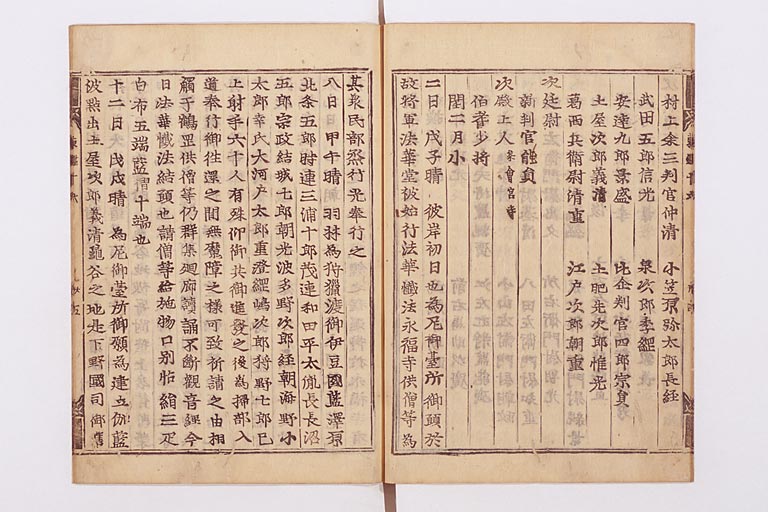 村上余三判官仲清　小笠原弥太郎長経
武田五郎信光　泉次郎季綱
安達九郎景盛　比企判官四郎宗員
土屋次郎義清　土肥先次郎惟光
葛西兵衛尉清重　江戸次郎朝重
次廷尉
新判官能員
次厩上人
伯耆少将
閏二月小
二日　戊子晴　彼岸初日也為尼御臺所御願於
故将軍法華堂被始行法華懺法永福寺供僧等為
其衆民部丞行光奉行之
八日　甲午晴　羽林為狩獵渡御伊豆國藍澤原
北条五郎時連三浦十郎茂連和田平太胤長長沼
五郎宗政結城七郎朝光波多野次郎経朝海野小
太郎幸氏大河戸太郎重澄纐嶋次郎狩野七郎已
上射手六十人有殊仰御共御進發之後為掃部入
道奉行御往還之間無魔障之様可致祈請之由相
觸于鶴罡供僧等仍群集廻廊讀誦不断觀音經今
日法華懺法結願也請僧等給施物口別帖絹三疋
白布五端藍摺十端也
十二日　戊戌晴　為尼御臺所御願為建立伽藍
被點出土屋次郎義清龜谷之地是下野國司御舊